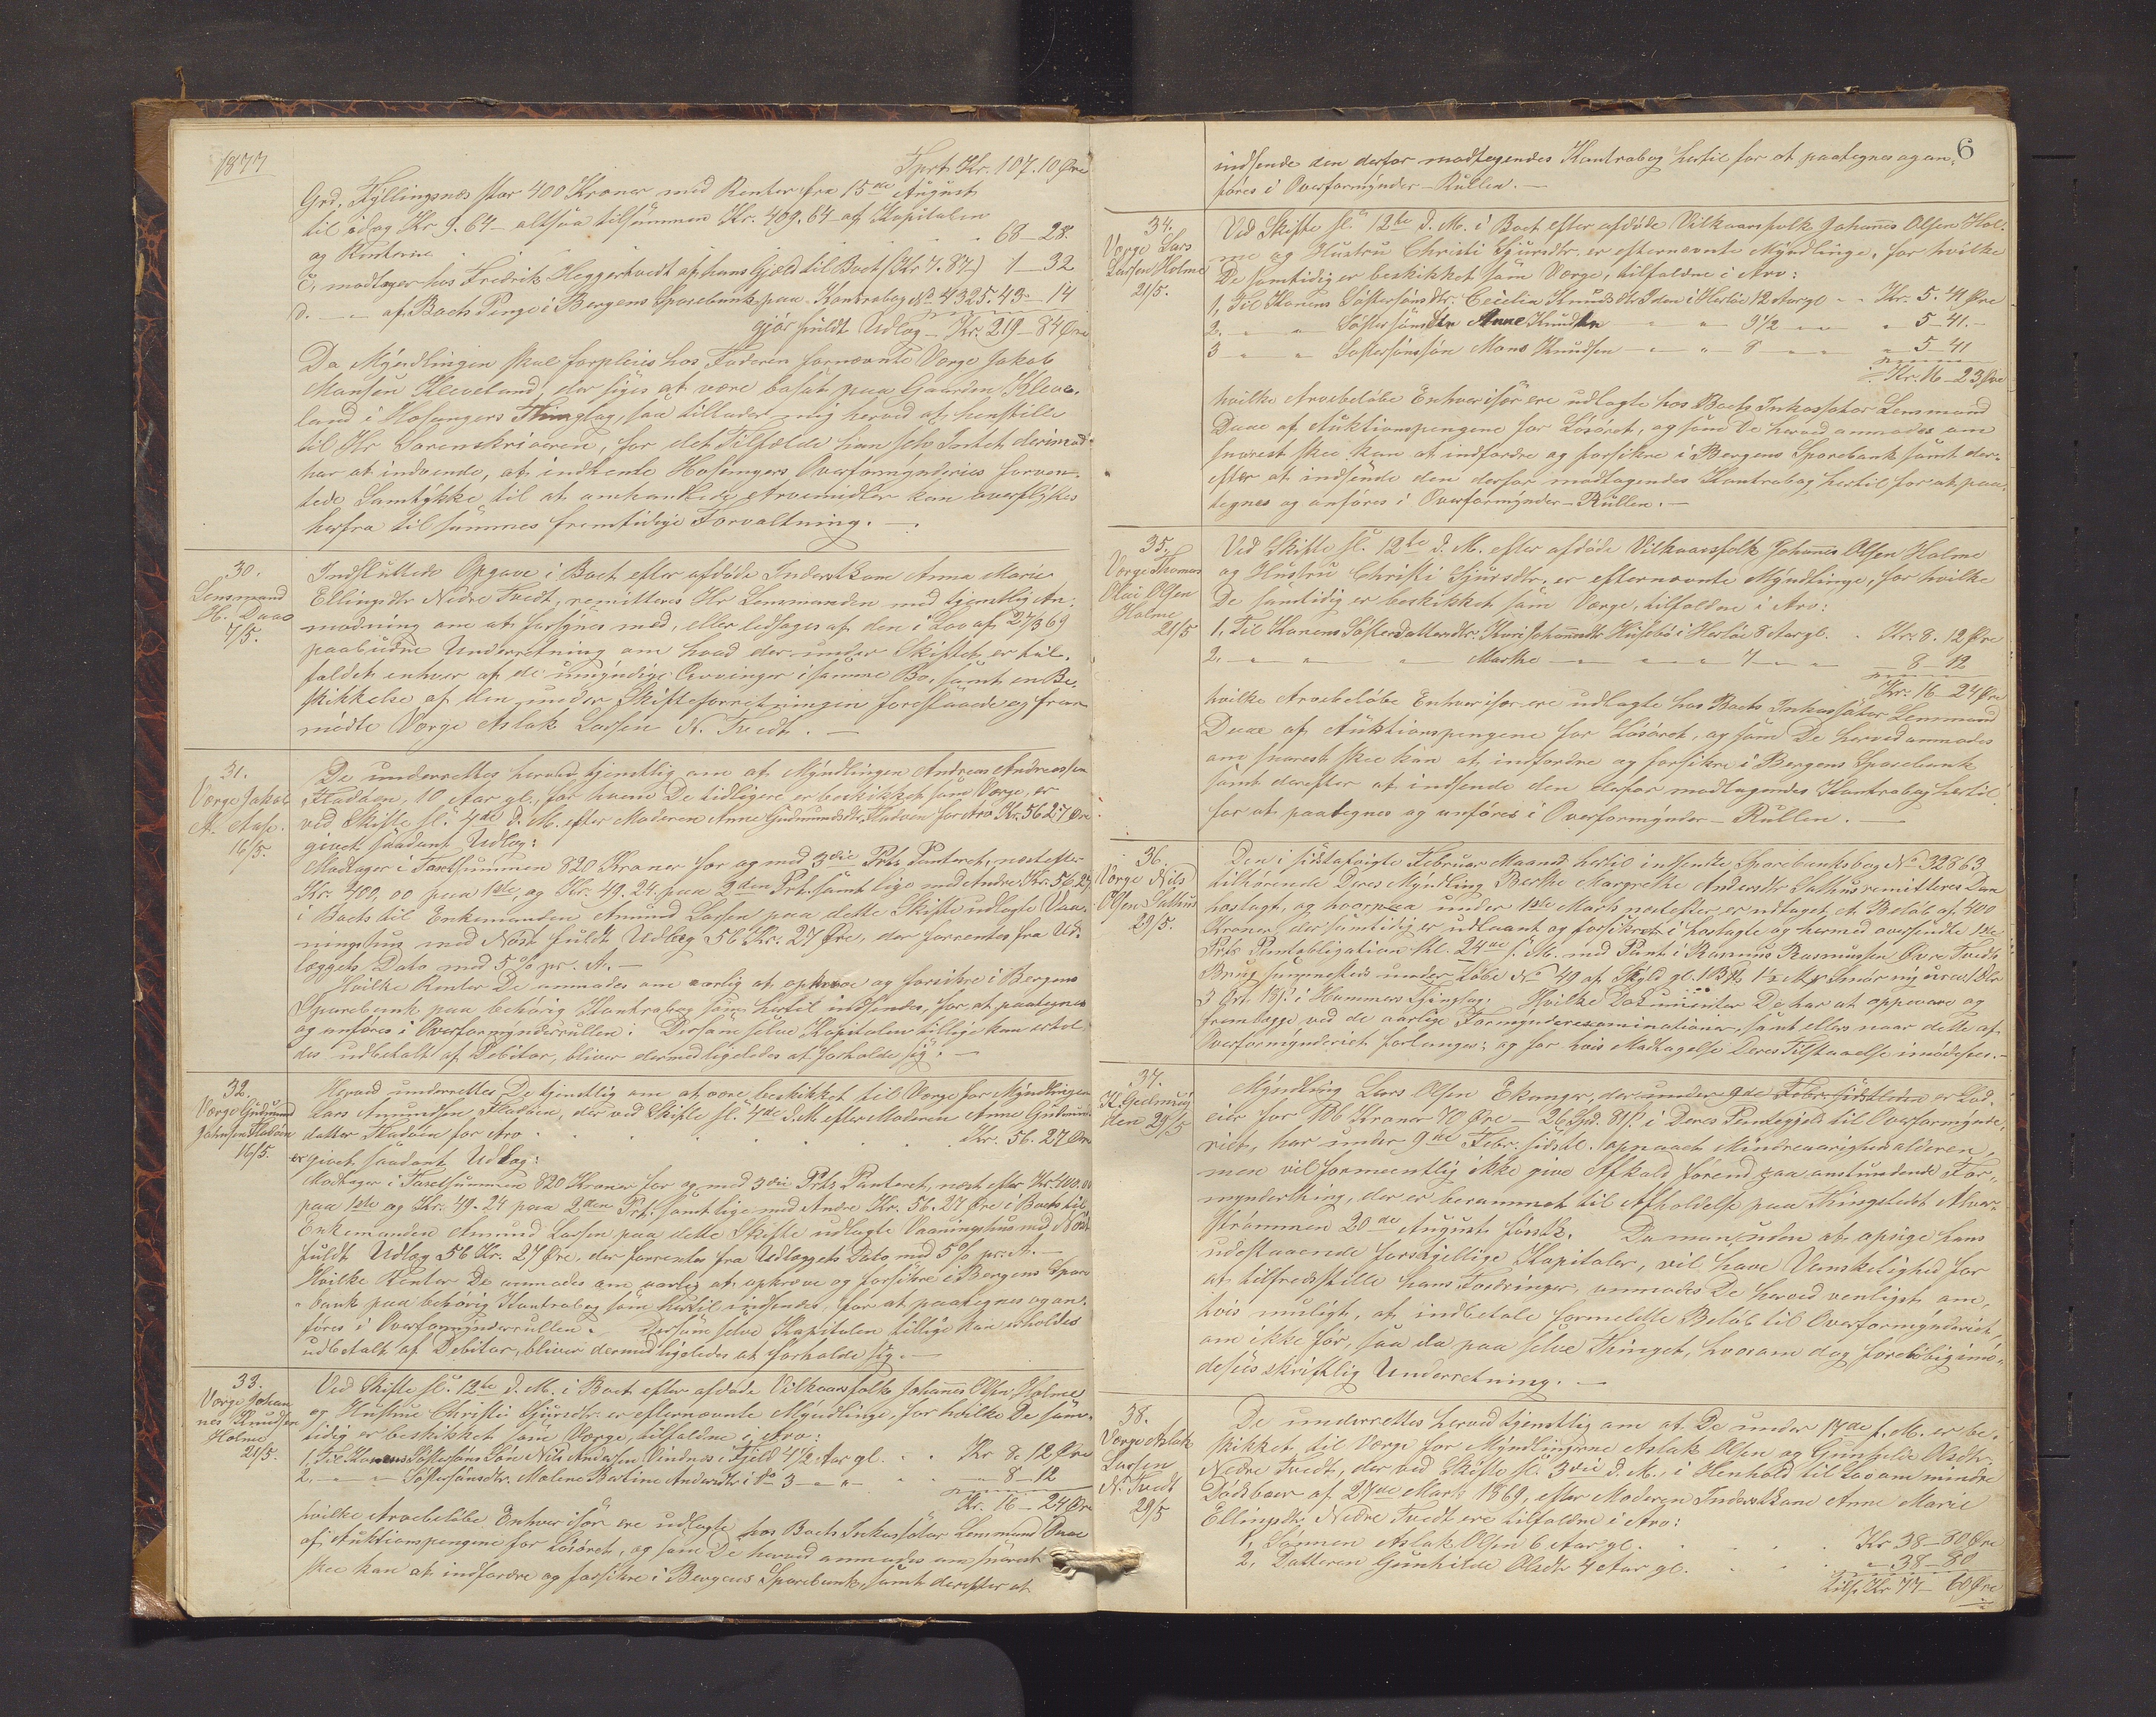 1877
Tprt. Kr. 107.10 Øre
Grd. Kyllingsnæs stor 400 Kroner med Renter fra 15de August
til idag Kr 9.64 – altsaa tilsammen Kr. 409.64 af Kapitalen
og Renterne . . . . . . 68 – 28.
c, modtager hos Fredrik Heggertvedt af hans Gjæld til Boet (Kr 7.87) 1 – 32
d. – „ – af Boets Penge i Bergens Sparebank paa Kontrabog No 4325. 43 – 14
gjør fuldt Udlæg – Kr. 219 – 84 Øre
Da Myndlingen skal forpleies hos Faderen fornævnte Værge Jakob
Monsen Kleveland, der siges at være bosat paa Gaarden Kleve-
land i Hosangers Thinglag, saa tillader mig herved at henstille
til Hr Sorenskriveren, for det Tilfælde han selv Intet derimod
har at indvende, at indhente Hosangers Overformynderies forven-
tede Samtykke til at omhandlede Arvemidler kan overflyttes
herfra til sammes fremtidige Forvaltning. –
30.
Lensmand
H. Daae
7/5.
Indsluttede Opgave i Boet efter afdøde Inderstkone Anna Marie
Ellingsdtr Nedre Tvedt, remitteres Hr Lensmanden med tjenstlig An-
modning om at forsynes med, eller ledsages af den i Lov af 27/3 69
paabudne Underretning om hvad der under Skiftet er til-
faldet enhver af de umyndige Arvinger i samme Bo, samt en Be-
skikkelse af den under Skifteforretningen foreslaaede og frem-
mødte Værge Aslak Larsen N. Tvedt. –
31.
Værge Jakob
A. Aase.
16/5.
De underrettes herved tjenstlig om at Myndlingen Andreas Andreassen
Fladøen, 10 Aar gl., for hvem De tidligere er beskikket som Værge, er
ved Skifte sl. 4de d. M. efter Moderen Anne Gudmundsdtr. Fladøen for Arv Kr. 56 27 Øre
givet saadant Udlæg:
Modtager i Taxtsummen 820 Kroner for og med 3die Prts Panteret, næst efter
Kr. 400,00 paa 1ste, og Kr. 49.24 paa 2den Prt. samt lige med Andre Kr. 56.27
i Boets til Enkemanden Amund Larsen paa dette Skifte udlagte Vaa-
ningshus med Nøst fuldt Udlæg 56 Kr. 27 Øre, der forrentes fra Ud-
læggets Dato med 5 % pr. A. –
Hvilke Renter De anmodes om aarlig at opkræve og forsikre i Bergens
Sparebank paa behørig Kontrabog som hertil indsendes, for at paategnes
og anføres i Overformynderrullen. Dersom selve Kapitalen tillige kan erhol-
des udbetalt af Debitor, bliver dermed ligeledes at forholde sig. –
32.
Værge Gudmund
Johnsen Fladøen
16/5.
Herved underrettes De tjenstlig om at være beskikket til Værge for Myndlingen
Lars Amundsen Fladøen, der ved Skifte sl. 4de d. M. efter Moderen Anne Gudmunds-
datter Fladøen for Arv . . . . . . Kr. 56. 27 Øre
er givet saadant Udlæg:
Modtager i Taxtsummen 820 Kroner for og med 3die Prts Panteret, næst efter Kr. 400.00
paa 1ste og Kr. 49.24 paa 2den Prt. samt lige med Andre Kr. 56.27 Øre i Boets til
Enkemanden Amund Larsen paa dette Skifte udlagte Vaaningshus med Nøst
fuldt Udlæg 56 Kr. 27 Øre, der forrentes fra Udlæggets Dato med 5 % pr. A. –
Hvilke Renter De anmodes om aarlig at opkræve og forsikre i Bergens Spare
bank paa behørig Kontrabog som hertil indsendes, for at paategnes og an-
føres i Overformynderrullen. Dersom selve Kapitalen tillige kan erholdes
udbetalt af Debitor, bliver dermed ligeledes at forholde sig. –
33.
Værge Johan
nes Knudsen
Holme
21/5.
Ved Skifte sl. 12te d. M. i Boet efter afdøde Vilkaarsfolk Johannes Olsen Holme
og Hustru Christi Sjursdtr. er efternævnte Myndlinge, for hvilke De sam-
tidig er beskikket som Værge, tilfaldne i Arv:
1, Til Konens Søstersøns Søn Nils Andersen Vindnes i Fjeld 4 1/2 Aar gl. . . Kr 8. 12 Øre
2, – „ – Søstersønsdtr. Malene Bertine Andersdtr i Do 3 – „ – „ – 8 – 12
Kr. 16 – 24 Øre
hvilke Arvebeløbe Enhver især ere udlagte hos Boets Inkassator Lensmand Daae
af Auktionspengene for Løsøret, og som De herved anmodes om snarest
skee kan at indfordre og forsikre i Bergens Sparebank, samt derefter at
6
indsende den derfor modtagendes Kontrabog hertil for at paategnes og an-
føres i Overformynder-Rullen. –
34.
Værge Lars
Larsen Holme
21/5.
Ved Skifte sl. 12te d. M. i Boet efter afdøde Vilkaarsfolk Johannes Olsen Hol-
me og Hustru Christi Sjursdtr. er efternævnte Myndlinge, for hvilke
De samtidig er beskikket som Værge, tilfaldne i Arv:
1, Til Konens Søstersønsdtr. Cecilia Knudsdtr Iden i Herlø 12 Aar gl – „ Kr. 5. 41 Øre
2, „ „ Søstersønsdtr Anne Knudsdtr – „ „ 9 1/2 – „ – „ 5 – 41. –
3 – „ „ Søstersønssøn Mons Knudsen – „ „ 8 – „ – 5 – 41
Kr. 16 – 23 Øre
hvilke Arvebeløbe Enhver især ere udlagte hos Boets Inkassator Lensmand
Daae af Auktionspengene for Løsøret, og som De herved anmodes om
snarest skee kan at indfordre og forsikre i Bergens Sparebank samt der-
efter at indsende den derfor modtagendes Kontrabog hertil for at paa-
tegnes og anføres i Overformynder-Rullen. –
35.
Værge Thomas
Olai Olsen
Holme
21/5
Ved Skifte sl. 12te d. M. efter afdøde Vilkaarsfolk Johannes Olsen Holme
og Hustru Christi Sjursdtr. er efternævnte Myndlinge, for hvilke
De samtidig er beskikket som Værge, tilfaldne i Arv:
1, Til Konens Søsterdatterdtr. Kari Johannesdtr Husebø i Herlø 8 Aar gl. . Kr. 8. 12 Øre
2. – „ – „ – „ Marthe – „ – „ 7 – „ – 8 – 12
Kr. 16 – 24 Øre
hvilke Arvebeløbe Enhver især ere udlagte hos Boets Inkassator Lensmand
Daae af Auktionspengene for Løsøret, og som De herved anmodes
om snarest skee kan at indfordre og forsikre i Bergens Sparebank
samt derefter at indsende den derfor modtagendes Kontrabog hertil
for at paategnes og anføres i Overformynder-Rullen. –
36.
Værge Nils
Olsen Salhus
29/5.
Den i sidstafvigte Februar Maaned hertil indsendte Sparebanksbog No 32863
tilhørende Deres Myndling Berthe Margrethe Andersdtr Salhus remitteres Dem
hoslagt, og hvorpaa under 1ste Marts næstefter er udtaget et Beløb af 400
Kroner der samtidig er udlaant og forsikret i hoslagte og hermed oversendte 1ste
Prts Pantobligation dd. 24de s. M. med Pant i Rasmus Rasmussen Øvre Tvedts
Brug sammesteds under Løbe No 49 af Skyld gl. 1 Bpd 1 1/2 Mrk Smør ny urev. 1 Dlr
3 Ort 18 s. i Hammers Thinglag: Hvilke Dokumenter De har at opbevare og
fremlægge ved de aarlige Formynderexaminationer, samt ellers naar dette af
Overformynderiet forlanges; og for hvis Modtagelse Deres Tilstaaelse imødesees. –
37.
K. Gjelmuij
den 29/5
Myndling Lars Olsen Ekanger, der under 9de Febr. sidstleden er Lod-
eier for 106 Kroner 70 Øre – 26 Spd. 81 s. i Deres Pantegjæld til Overformynde-
riet, har under 9de Febr. sidstl. opnaaet Mindreaarighedsalderen,
men vil formeentlig ikke give Afkald førend paa anstundende For-
mynderthing, der er berammet til Afholdelse paa Thingstedet Alver-
strømmen 20de August førstk. Da man, uden at opsige hans
udestaaende forskjellige Kapitaler, vil have Vanskelighed for
at tilfredsstille hans Fordringer, anmodes De herved venligst om,
hvis muligt, at indbetale formeldte Beløb til Overformynderiet,
om ikke før, saa da paa selve Thinget, hvorom dog foreløbig imø-
desees skriftlig Underretning. –
38.
Værge Aslak
Larsen
N. Tvedt
29/5
De underrettes herved tjenstlig om at De under 17de f. M. er be-
skikket til Værge for Myndlingerne Aslak Olsen og Gunhilde Olsdtr.
Nedre Tvedt, der ved Skifte sl. 3die d. M., i Henhold til Lov om mindre
Dødsboer af 27de Marts 1869, efter Moderen Inderstkone Anne Marie
Ellingsdtr Nedre Tvedt ere tilfaldne i Arv:
1, Sønnen Aslak Olsen 6 Aar gl. . . . . Kr 38 – 80 Øre
2, Datteren Gunhilde Olsdtr 4 Aar gl. . . . „ 38 – 80
tils. Kr 77 – 60 Øre